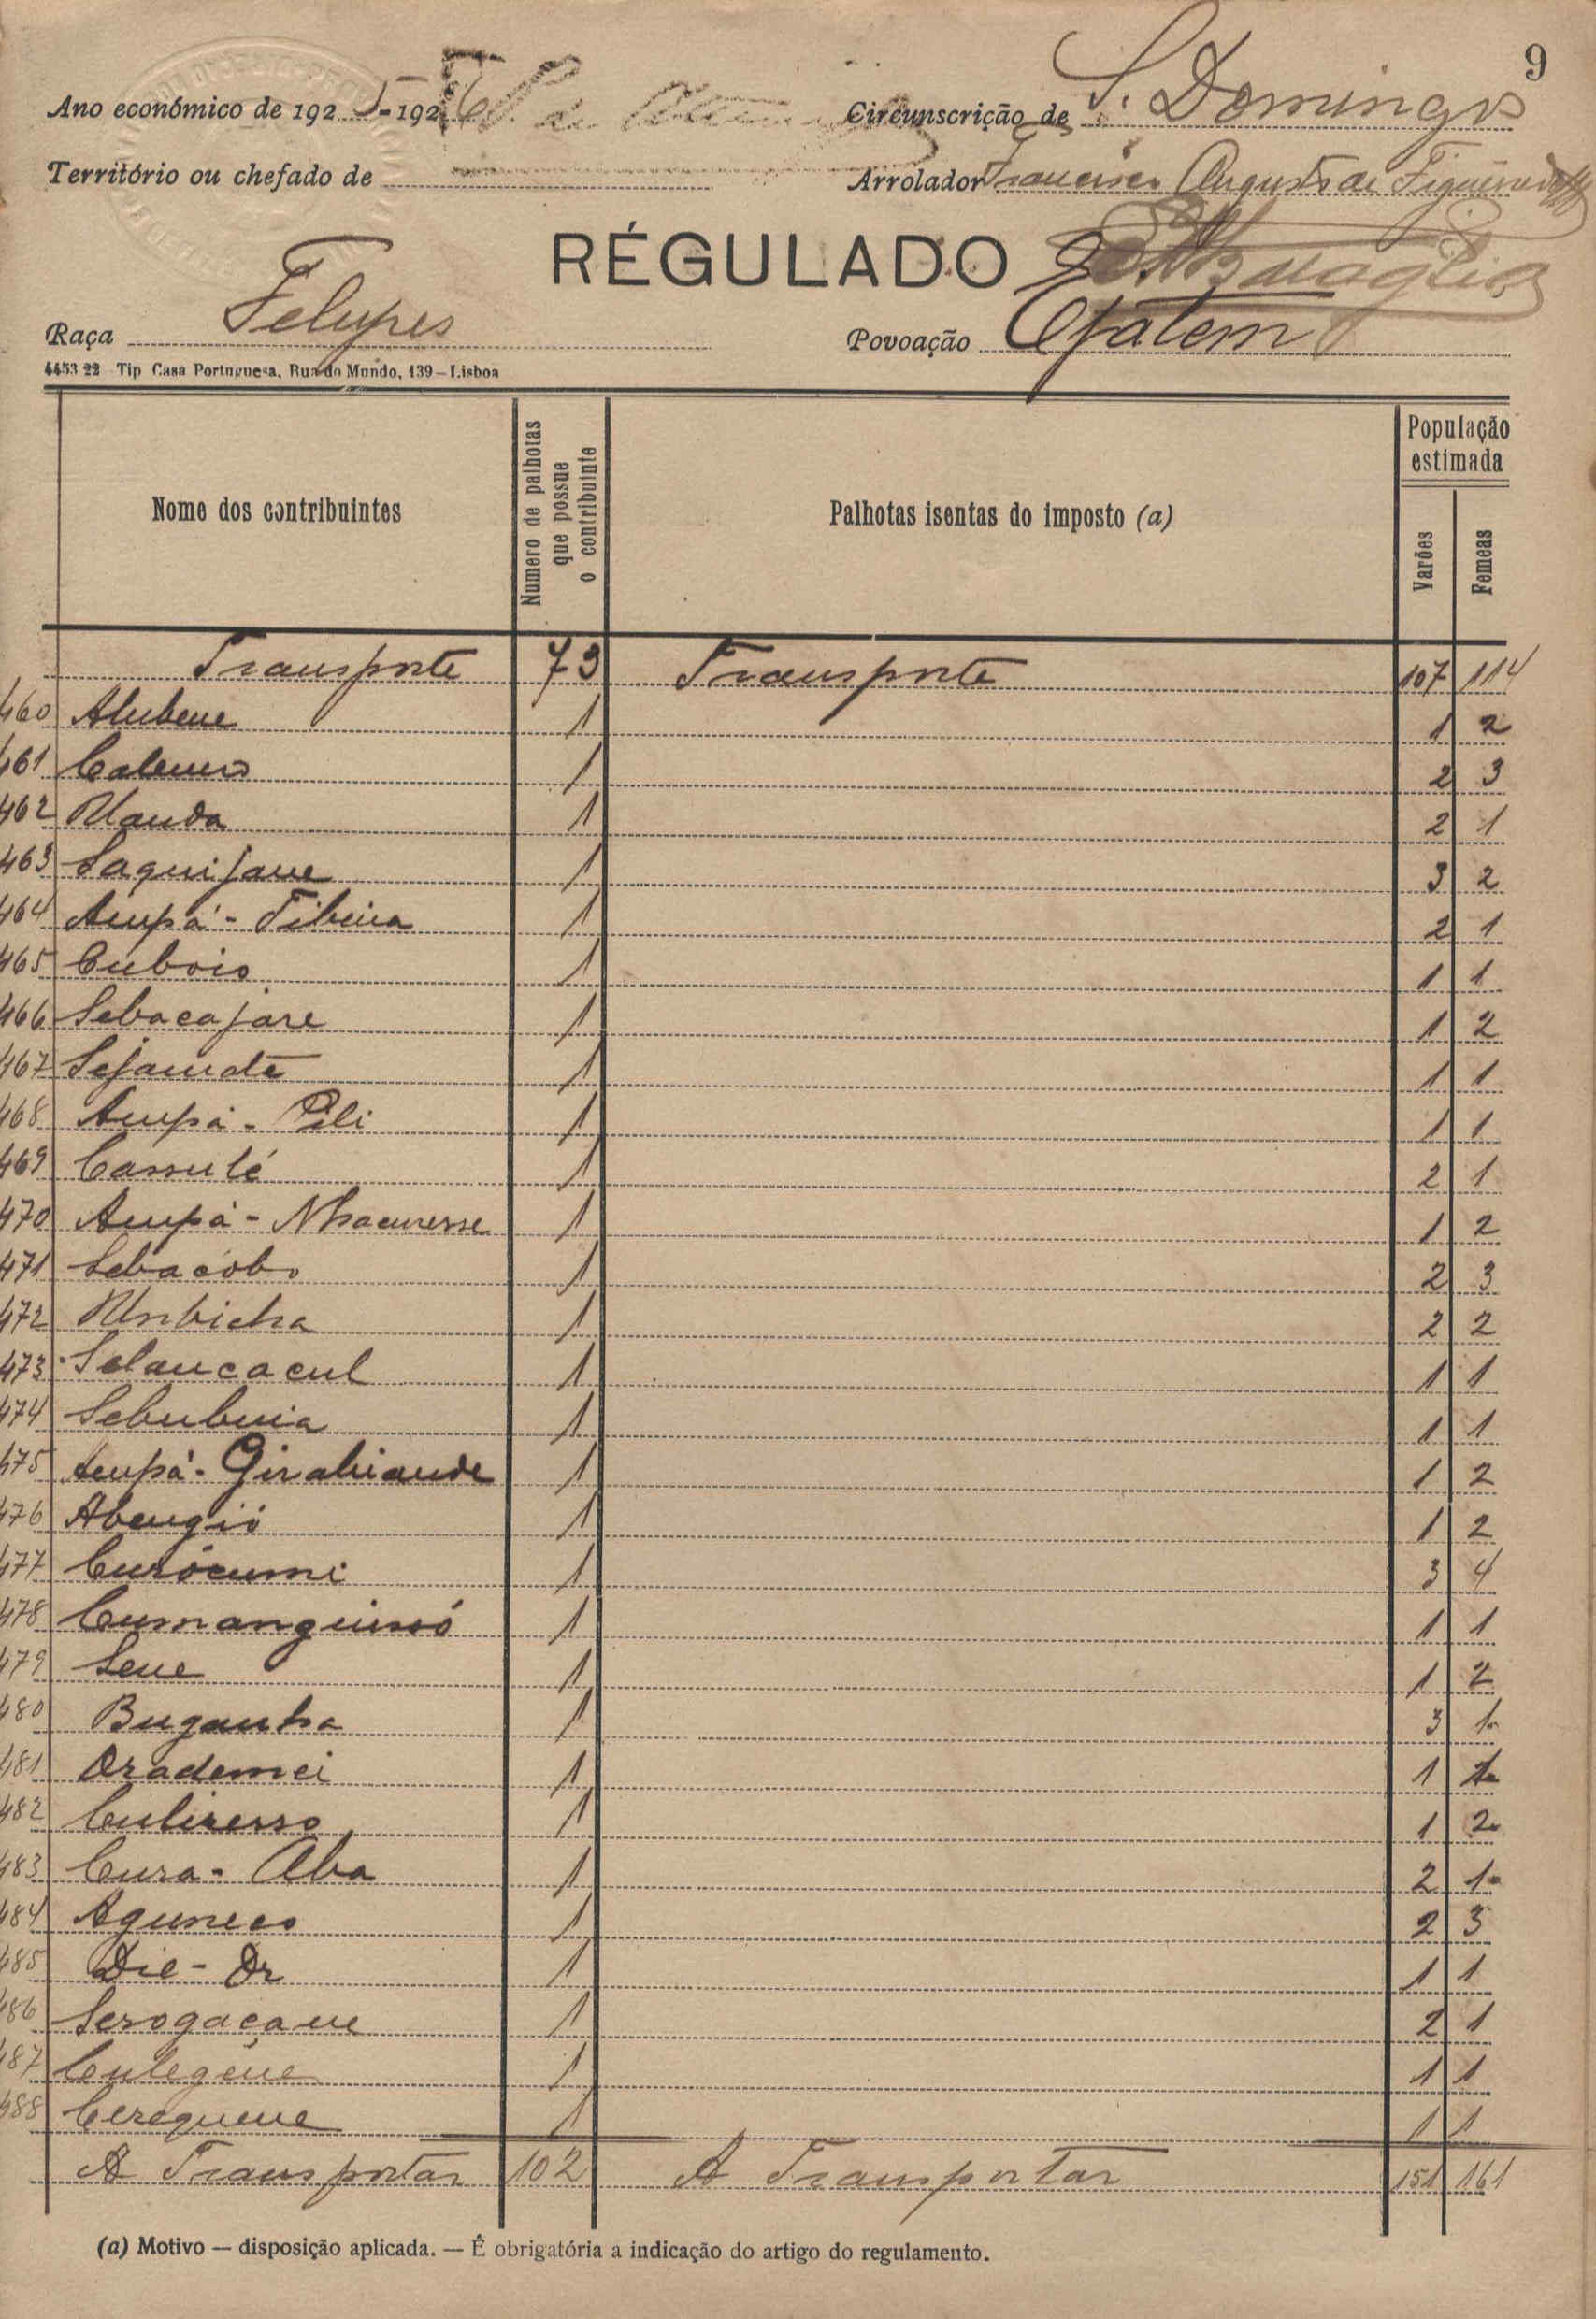 9
Ano económico de 1925-1926 Circunscrição de S. Domingos
Território ou chefado de Arrolador Francisco Augusto de Figueiredo
RÉGULADO
Raça Felupes Povoação Efatem
4453 22 Tip Casa Portuguesa, Rua do Mundo, 139—Lisboa
Nome dos contribuintes Numero de palhotas que possue o contribuinte Palhotas isentas do imposto (a) População estimada Varões Femeas
Transporte 73 Transporte 107 114
460 Alubene 1 1 2
461 Calemo 1 2 3
462 Uanda 1 2 1
463 Saquijane 1 3 2
464 Ampá-Tibeira 1 2 1
465 Cubois 1 1 1
466 Sebacajare 1 1 2
467 Sejamate 1 1 1
468 Ampá-Pili 1 1 1
469 Cassulé 1 2 1
470 Ampá-Nhacunesse 1 1 2
471 Sebacóbo 1 2 3
472 Unbicha 1 2 2
473 Selancacul 1 1 1
474 Sebubuia 1 1 1
475 Ampá-Girabiande 1 1 2
476 Abengió 1 1 2
477 Curócumi 1 3 4
478 Cumanguissó 1 1 1
479 Sene 1 1 2
480 Buganha 1 3 1
481 Orademei 1 1 1
482 Culiresso 1 1 2
483 Cura-Aba 1 2 1
484 Aguneco 1 2 3
485 Die-Or 1 1 1
486 Serogaçane 1 2 1
487 Culegéne 1 1 1
488 Cerequene 1 1 1
A Transportar 102 A Transportar 151 161
(a) Motivo — disposição aplicada. — É obrigatória a indicação do artigo do regulamento.